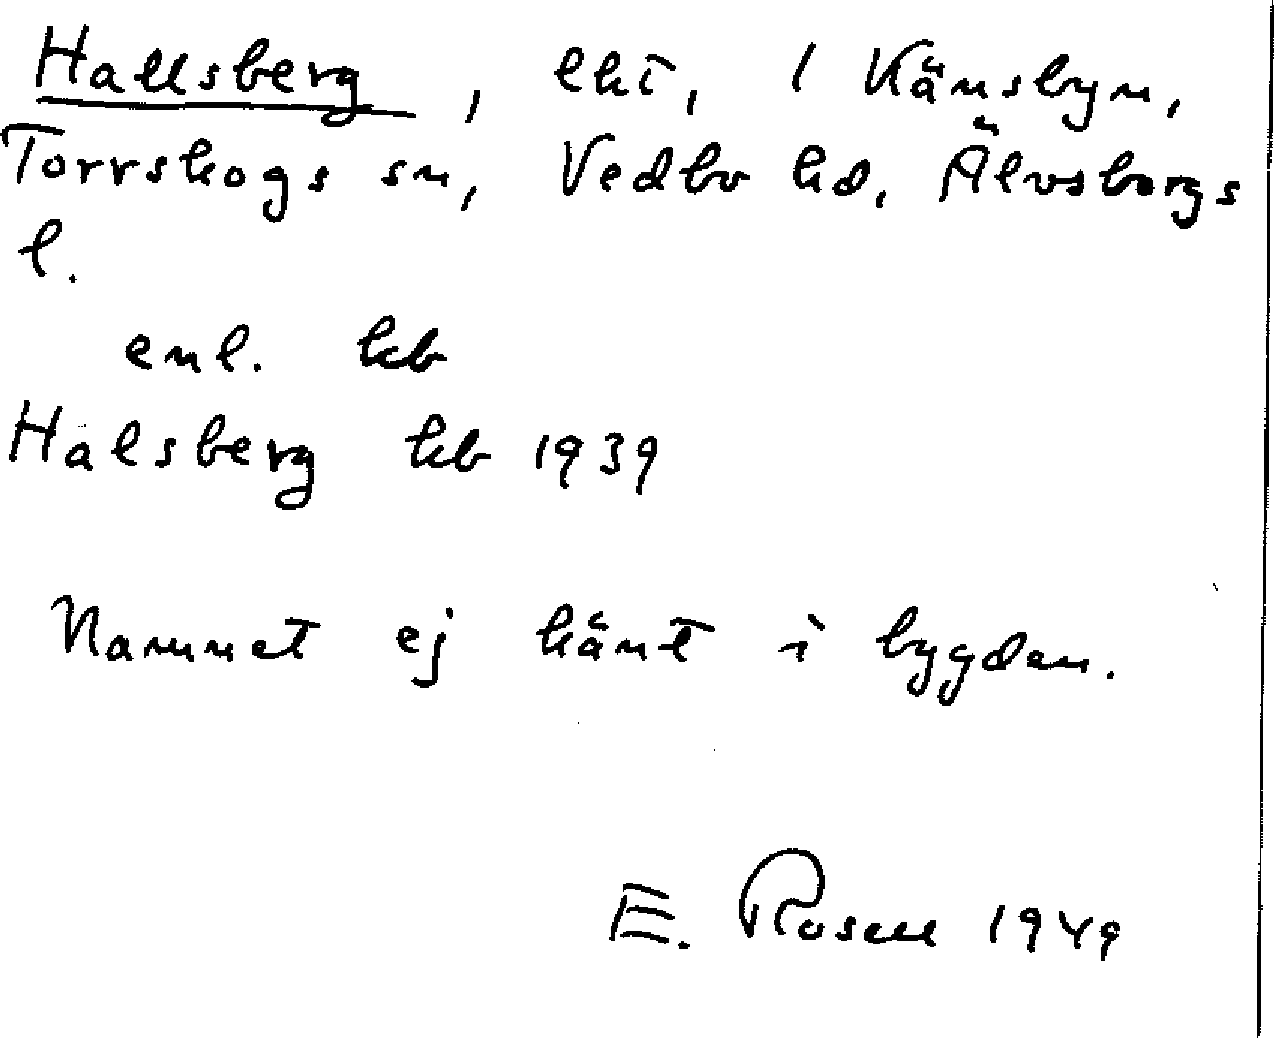 Hallsberg, lht, 1 Känsbyn,
Torrskogs sn, Vedbo hd, Älvsborgs
l.
enl. kb
Halsberg kb 1939
Namnet ej känt i bygden.
E. Rosell 1949